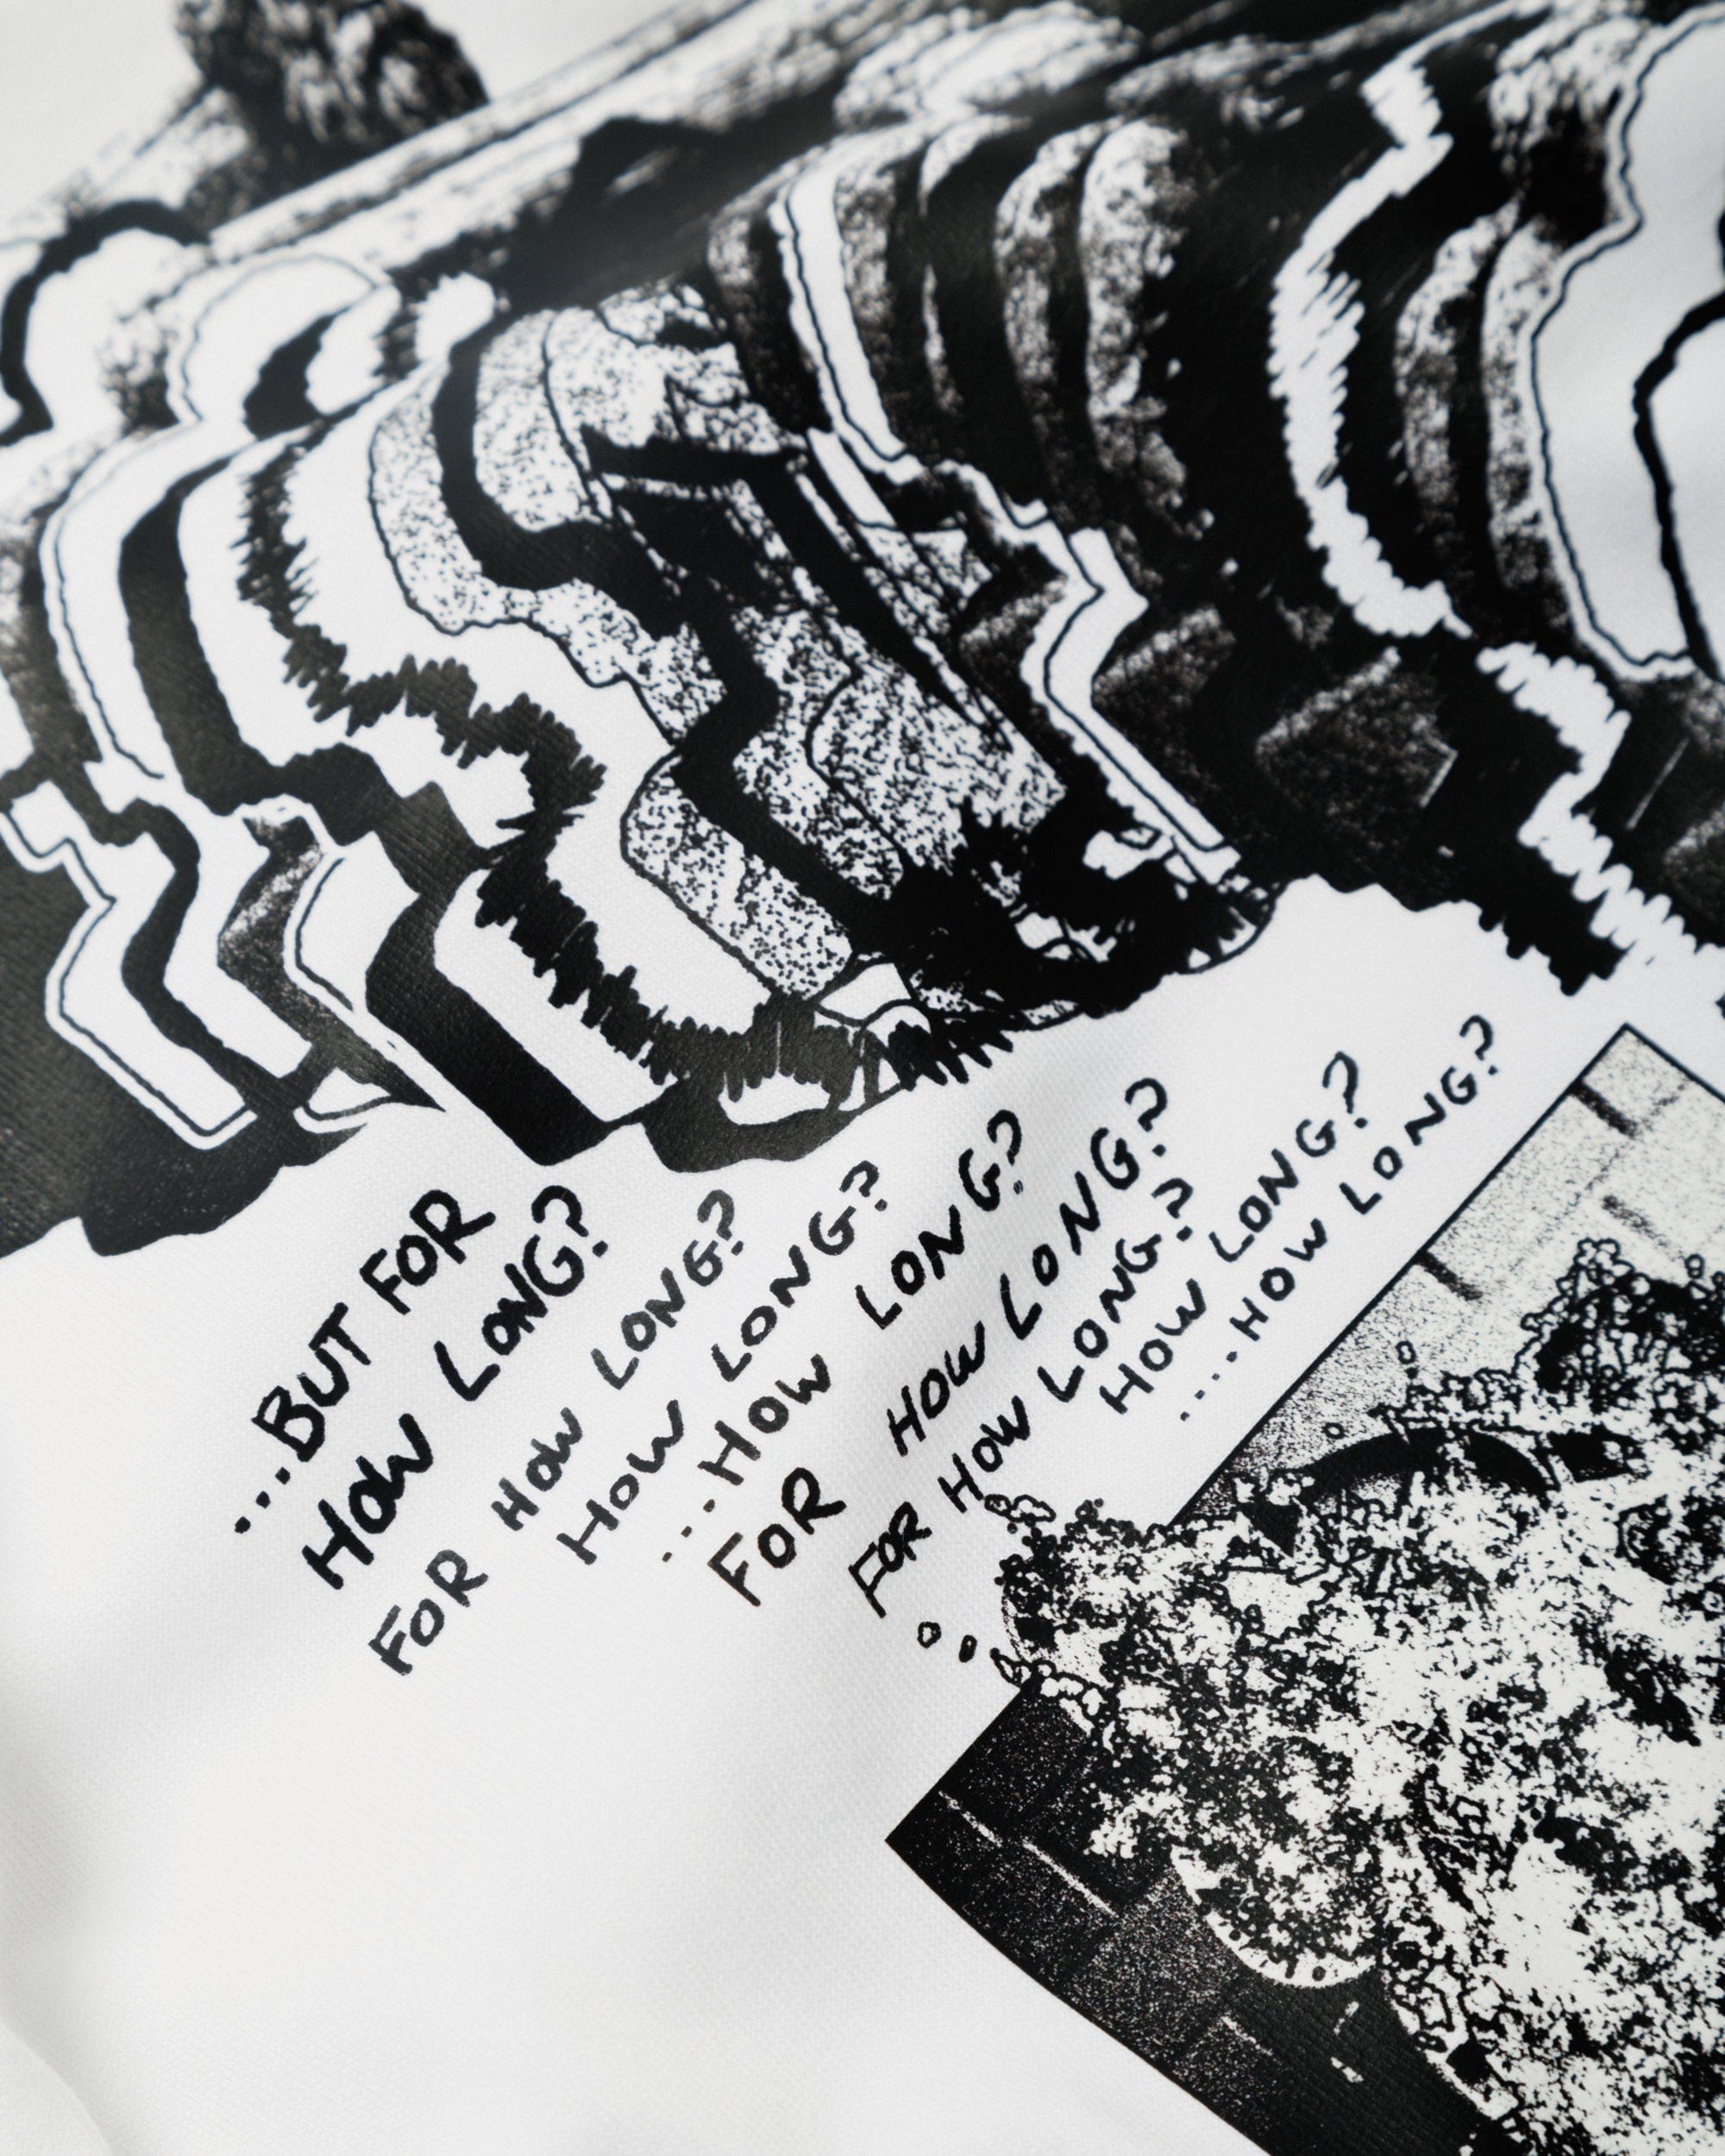 ...BUT FOR
HOW LONG?
FOR HOW LONG?
HOW LONG?
...HOW LONG?
FOR HOW LONG?
FOR HOW LONG?
HOW LONG?
...HOW LONG?